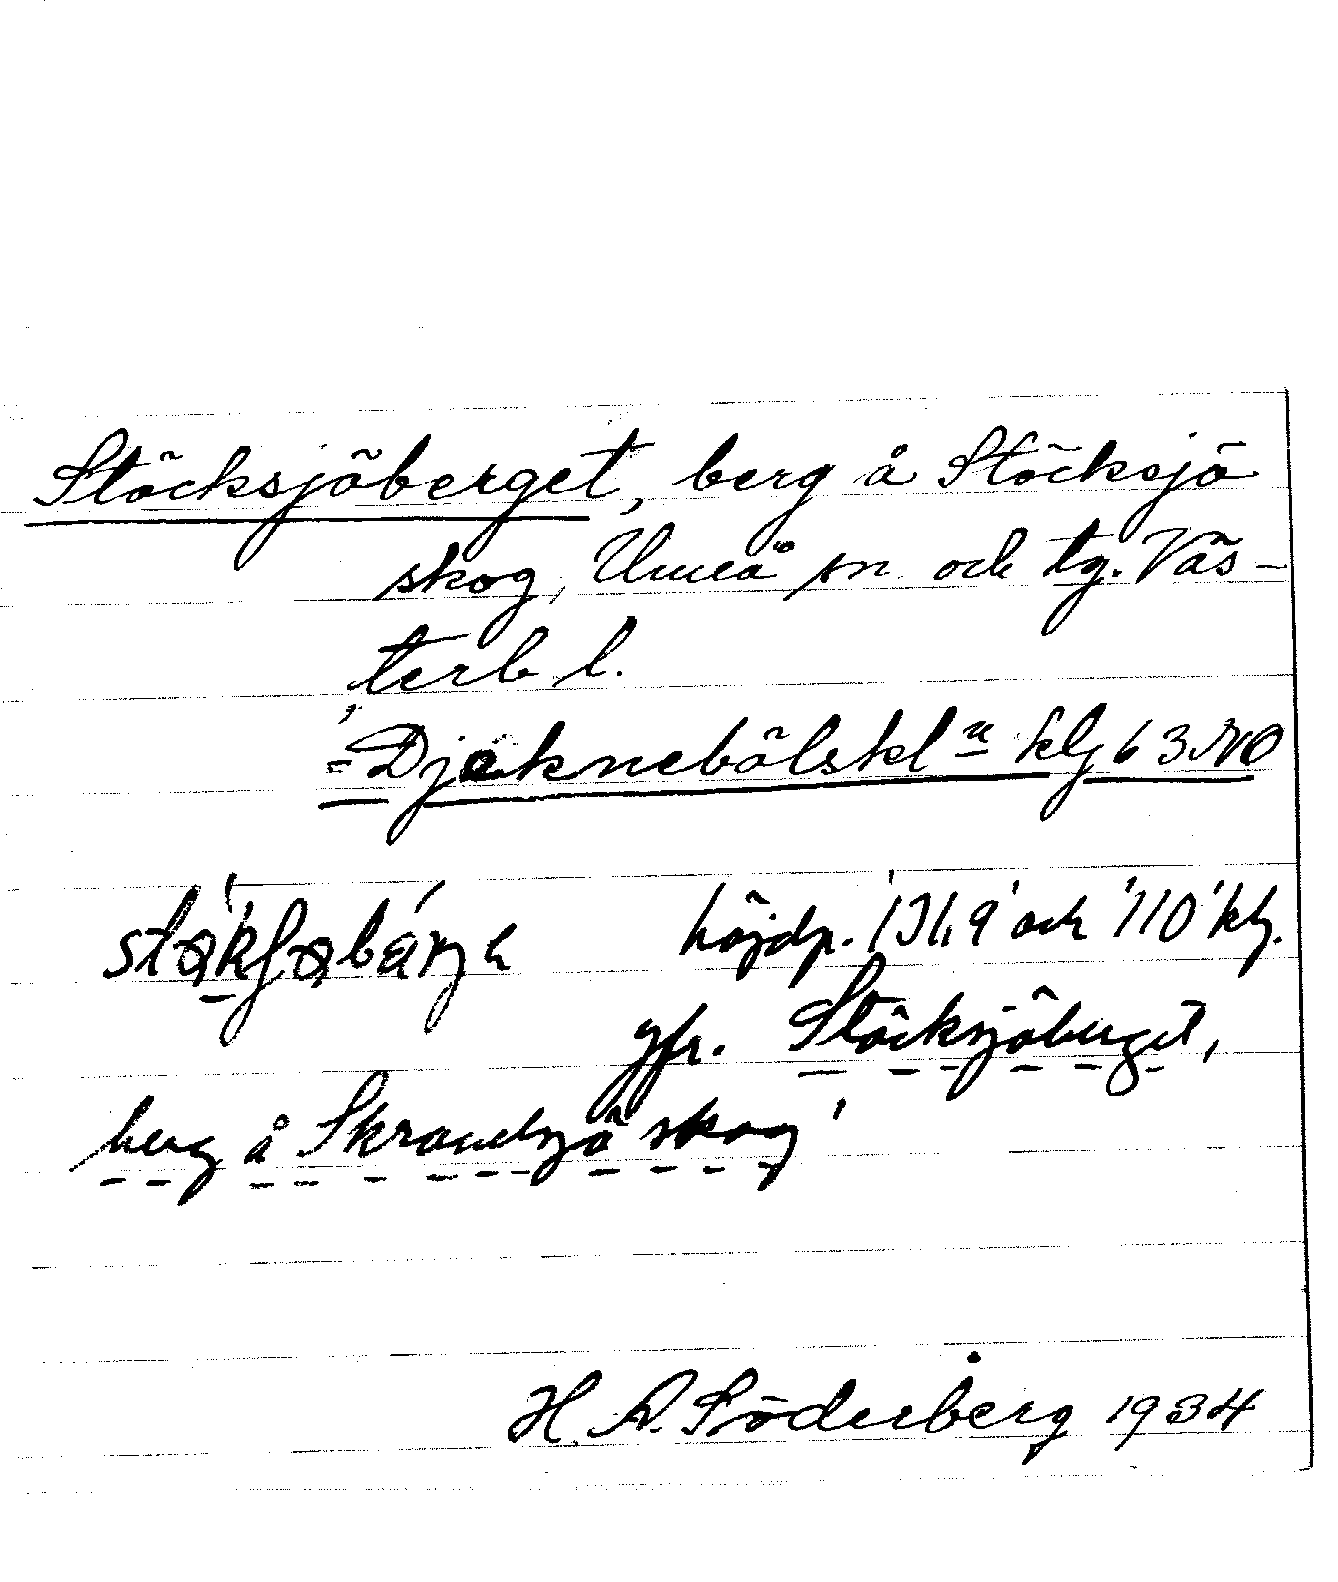 Stöcksjöberget, berg å Stöcksjö
skog, Umeå sn och tg. Väs-
terb l.
= Djeknebölskl
klg 63 NO
höjdp. '131,9' och '110' klg.
jfr. Stöcksjöberget,
berg å Skravelsjö skog'
H. A. Söderberg 1934